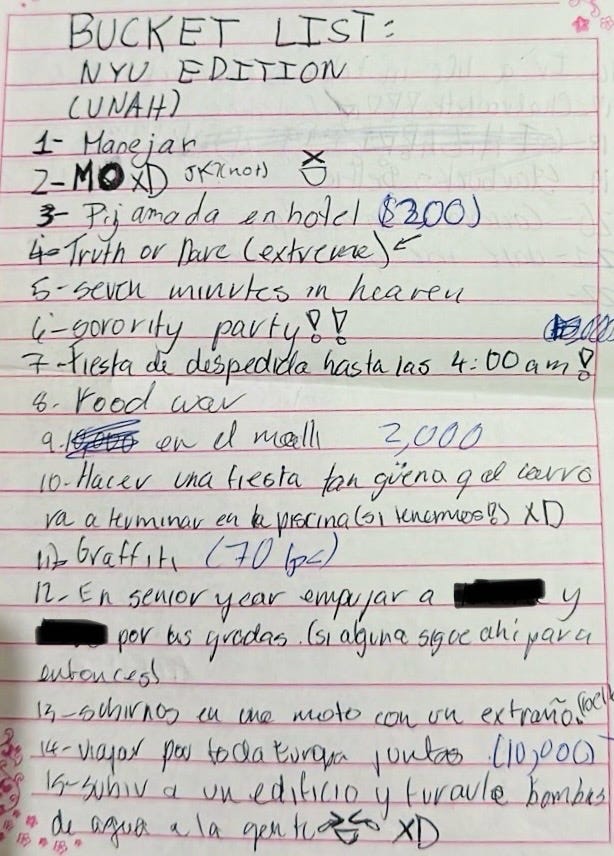 BUCKET LIST:
NYU EDITION
(UNAH)
1- Manejar
2- MO XD JK?(not)
3- Pijamada en hotel ($300)
4- Truth or Dare (extreme)
5- seven minutes in heaven
6- sorority party!!
7- fiesta de despedida hasta las 4:00 am!
8. Food war
9. en el mall 2,000
10- Hacer una fiesta tan güena q el carro
va a terminar en la piscina (si tenemos?) XD
11- Graffiti (70 pc)
12- En senior year empujar a y
por las gradas. (si alguna sigue ahí para
entonces)
13- subirnos en una moto con un extraño.
14- viajar por toda Europa juntas (10,000)
15- subir a un edificio y tirarle bombas
de agua a la gente XD